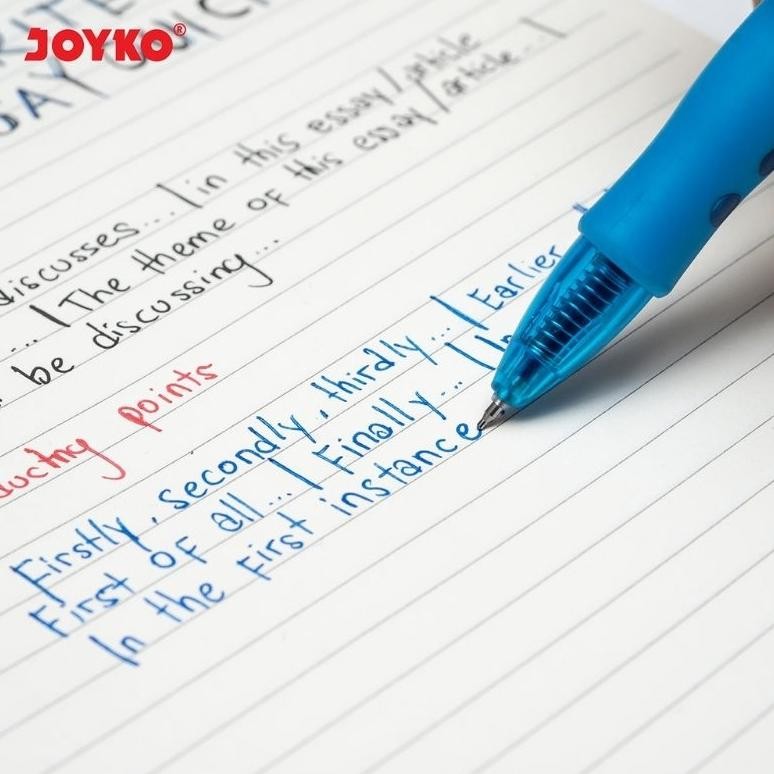 JOYKO®
discusses... / in this essay / article
... / The theme of this essay / article... /
be discussing...
points
Firstly, secondly, thirdly... / Earlier
First of all... / Finally... /
In the first instance